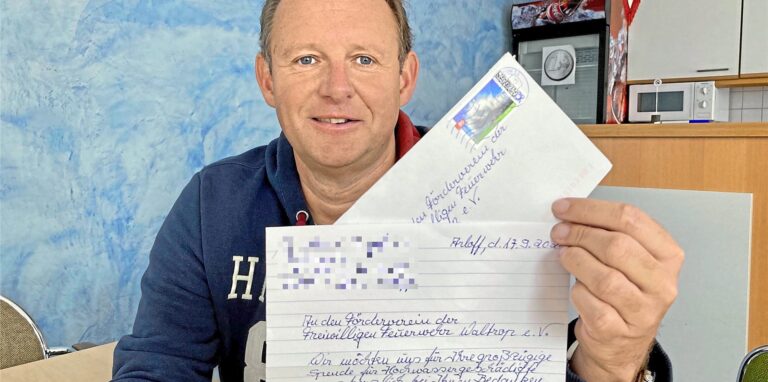 den Förderverein der
willigen Feuerwehr
e. V.
Arloff, d. 17.9.20
An den Förderverein der
Freiwilligen Feuerwehr Waltrop e. V.
Wir möchten uns für Ihre großzügige
Spende für Hochwassergeschädigte
bei Ihnen Bedanken
H